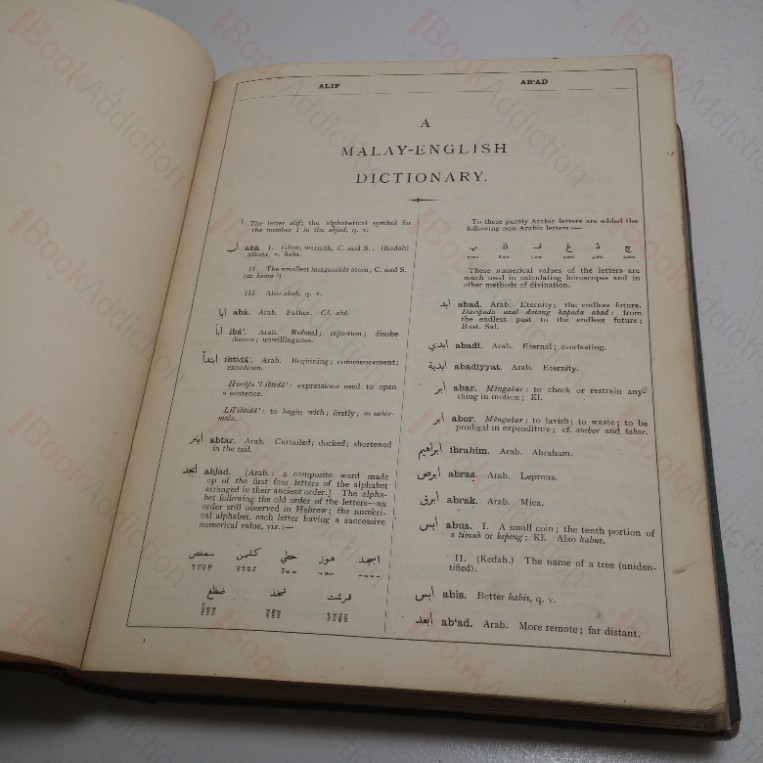 ALIF
AB'AD
A
MALAY-ENGLISH
DICTIONARY.
ا The letter alif; the alphabetical symbol for
the number 1 in the abjad, q. v.
اب aba. I. Glow, warmth, C. and S.; (Kedah)
v. haba.
II. The smallest imaginable atom; C. and S.
III. Also abah, q. v.
ابا abā. Arab. Father. Cf. abū.
ابا ibā'. Arab. Refusal; rejection; disobe-
dience; unwillingness.
ابتدأ ibtidā'. Arab. Beginning; commencement;
exordium.
Hurūfu 'l-ibtidā': expressions used to open
a sentence.
Lil'ibtidā': to begin with; firstly; = sabĕr-
mola.
ابتر abtar. Arab. Curtailed; docked; shortened
in the tail.
ابجد abjad. [Arab.: a composite word made
up of the first four letters of the alphabet
arranged in their ancient order.] The alpha-
bet following the old order of the letters—an
order still observed in Hebrew; the numeri-
cal alphabet, each letter having a successive
numerical value, viz.:—
ابجد هوز حطي كلمن سعفص
قرشت ثخذ ضظغ
To these purely Arabic letters are added the
following non-Arabic letters:—
These numerical values of the letters are
much used in calculating horoscopes and in
other methods of divination.
ابد abad. Arab. Eternity; the endless future.
Daripada azal datang kapada abad: from
the endless past to the endless future;
Bost. Sal.
ابدي abadī. Arab. Eternal; everlasting.
ابدية abadīyyat. Arab. Eternity.
ابر abar. Mĕngabar: to check or restrain any-
thing in motion; Kl.
ابر abor. Mĕngabor: to lavish; to waste; to be
prodigal in expenditure; cf. ambor and tabor.
ابراهيم ibrahim. Arab. Abraham.
ابرص abras. Arab. Leprous.
ابرق abrak. Arab. Mica.
ابس abus. I. A small coin; the tenth portion of
a timah or kepeng; Kl. Also habus.
II. (Kedah.) The name of a tree (uniden-
tified).
ابس abis. Better habis, q. v.
ابعد ab'ad. Arab. More remote; far distant.
BookAddiction